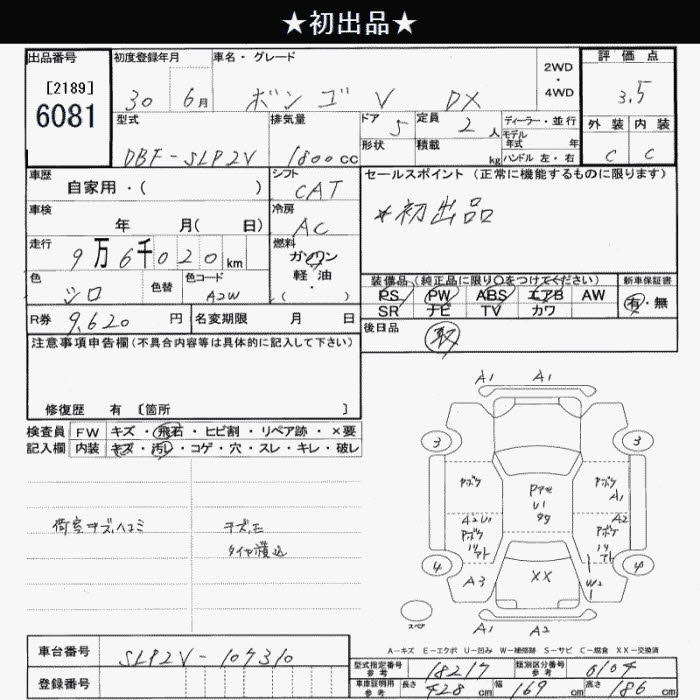 ★初出品★
出品番号 初度登録年月 車名・グレード 2WD ・ 4WD 評価点
[2189]
6081
30 6月 ボンゴ V DX 3.5
型式 排気量 ドア 5 定員 2 人 ディーラー・並行 外装 内装
モデル年式 年
DBF-SLP2V 1800cc 形状 積載 kg ハンドル 左・右 C C
車歴 シフト セールスポイント (正常に機能するものに限ります)
自家用・( ) CAT
車検 冷房 *初出品
年 月( 日) AC
走行 燃料
9万6千020km ガソリン
軽・油
・( )
色 色替 色コード 装備品 (純正品に限り〇をつけてください) 新車保証書
シロ A2W PS PW ABS エアB AW 有・無
SR ナビ TV カワ
R券 9,620 円 名変期限 月 日 後日品 取
注意事項申告欄(不具合内容等は具体的に記入して下さい)
修復歴 有 〔箇所 〕
検査員 FW キズ・飛石・ヒビ割・リペア跡・×要
記入欄 内装 キズ・汚れ・コゲ・穴・スレ・キレ・破レ
荷室キズ、ヘコミ
キズ、モ
タイヤ積込
A1 A1
3 3
アボケ アボケ A1
A2U1 A2
アボケ アボケ
4 4
A3 XX W2
スペア A1 A2
A-キズ E-エクボ U-凹み W-補修跡 S-サビ C-腐食 XX-交換済
車台番号 SLP2V-107310
登録番号
型式指定番号 参考 18217 類別区分番号 参考 0104
車庫証明用 参考 長さ 428 cm 幅 169 cm 高さ 186 cm